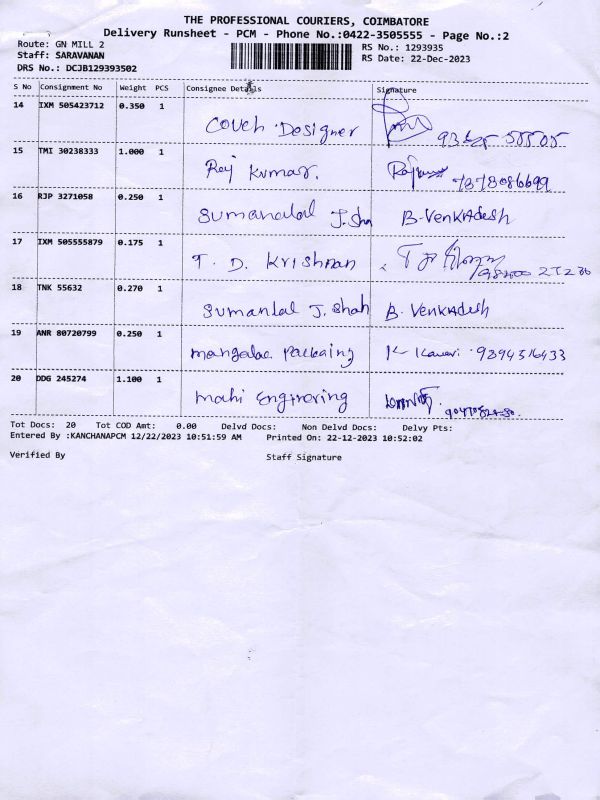 THE PROFESSIONAL COURIERS, COIMBATORE
Delivery Runsheet - PCM - Phone No.:0422-3505555 - Page No.:2
Route: GN MILL 2
RS No.: 1293935
Staff: SARAVANAN
RS Date: 22-Dec-2023
DRS No.: DCJB129393502
S No Consignment No Weight PCS Consignee Details Signature
14 IXM 505423712 0.350 1
Couch Designer
15 TMI 30238333 1.000 1
Raj Kumar. 7878086699
16 RJP 3271058 0.250 1
Sumanalal J.Sha B.Venkadesh
17 IXM 505555879 0.175 1
T. D. Krishnan
18 TNK 55632 0.270 1
Sumanlal J. Shah B. Venkadesh
19 ANR 80720799 0.250 1
mangalac packaing K. Kaveri 9894316433
20 DDG 245274 1.100 1
mahi Enginering
Tot Docs: 20 Tot COD Amt: 0.00 Delvd Docs: Non Delvd Docs: Delvy Pts:
Entered By :KANCHANAPCM 12/22/2023 10:51:59 AM Printed On: 22-12-2023 10:52:02
Verified By Staff Signature